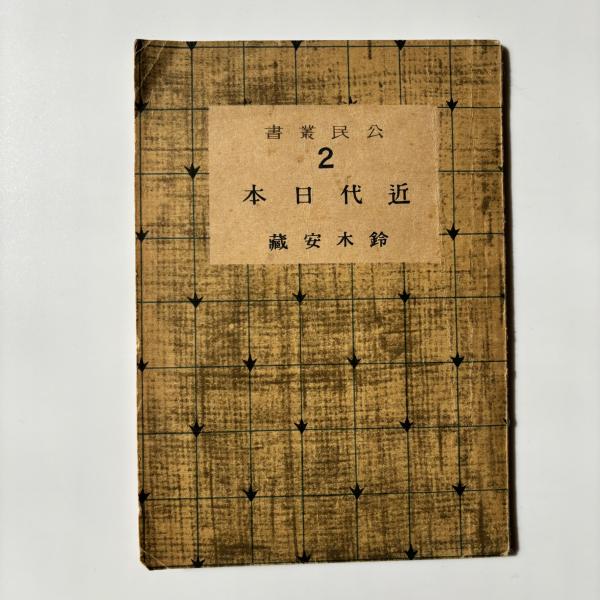 公民叢書
2
近代日本
鈴木安藏